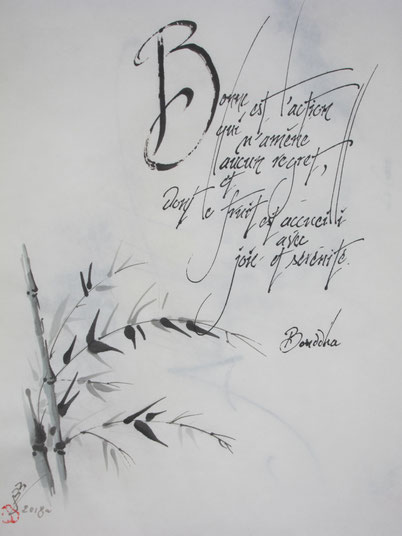 Bonne est l'action
qui n'amène
aucun regret,
et
dont le fruit
est accueilli
avec
joie et sérénité.
Bouddha
2018